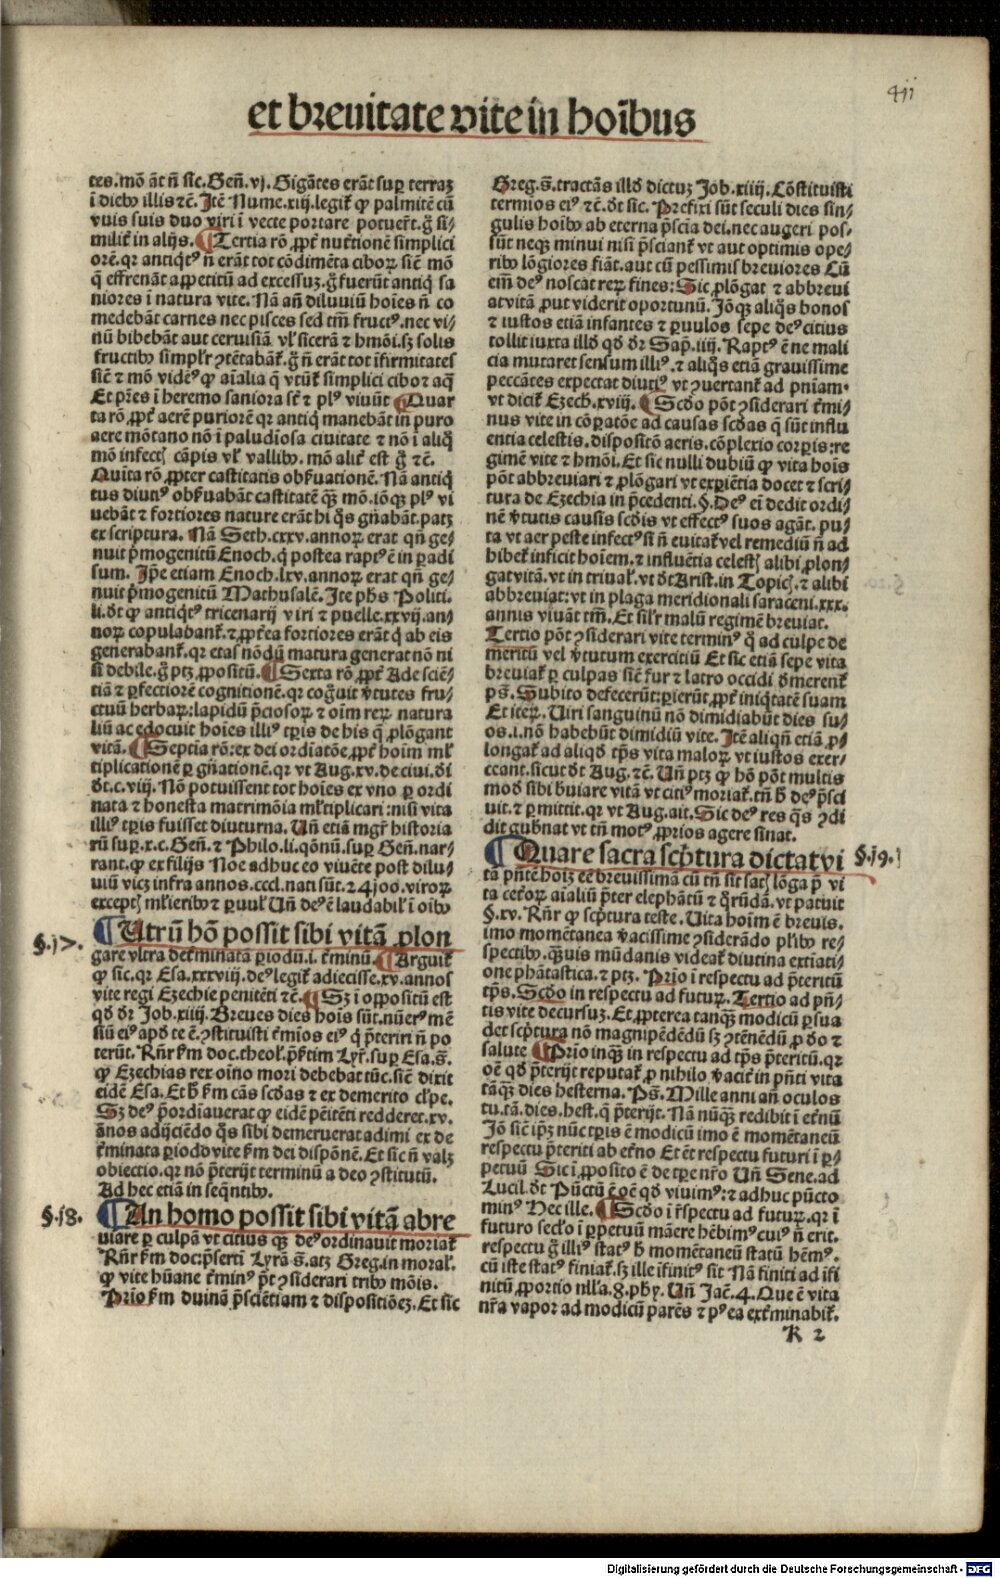 et breuitate vite in hoībus
tes. mō āt nō sic. Geñ. vj. Gigātes erāt sup̲ terraꝫ
ī diebꝰ illis ⁊c̄. Itē Nume. xiij. legit̄ ꝙ palmitē cū
vuis suis duo viri ī vecte portare potuer̄t. g̊ si⸗
milit̄ in alijs. ¶ Tertia rō ꝓpt̄ nutⁱtionē simplici
orē. qr antiqⁱtꝰ n̄ erāt tot cōdimēta ciboꝝ sic̄ mō
q̄ effrenāt appetitū ad excessuꝫ. g̊ fuerūt antiqⁱ sa
niores ī natura vite. Nā añ diluuiū hoīes n̄ co
medebāt carnes nec pisces sed tm̄ fructꝰ. nec vi⸗
nū bibebāt aut ceruisiā vl̓ sicerā ⁊ hmōi. sꝫ solis
fructibꝰ simpl̓r ꝯtētabāt̄. g̊ n̄ erāt tot īfirmitates
sic̄ ⁊ mō vidēꝰ ꝙ aīalia q̄ vtūt̄ simplici cibo ⁊ aq̄
Et pr̄es ī heremo saniora st̄ ⁊ plꝰ viuūt ¶ Quar
ta rō ꝓpt̄ aerē puriorē qr antiqⁱ manebāt in puro
aere mōtano nō ī paludīosa ciuitate ⁊ nō ī aliqⁱ
mō infectꝭ cāpis vl̓ vallibꝰ. mō alit̄ est g̊ ⁊c̄.
Quīta rō ꝓpter castitatis obẜuationē. Nā antiqⁱ
tus diutiꝰ obẜuabāt castitatē qꝫ mō. iōqꝫ plꝰ vi
uebāt ⁊ fortiores nature erāt hi q̊s gn̄abāt. patꝫ
ex scriptura. Nā Seth. cxxv. annoꝝ erat qn̄ ge⸗
nuit pⁱmogenitū Enoch. qⁱ postea raptꝰ ē in p̲adi
sum. Ip̄e etiam Enoch. lxv. annoꝝ erat qn̄ ge⸗
nuit pⁱmogenitū Mathusalē. Itē ph̄s Politi.
li. dt̄ ꝙ antiqⁱtꝰ tricenarij viri ⁊ puelle. xxvij. an⸗
noꝝ copulabant̄. ⁊ ꝓpt̄ea fortiores erāt qⁱ ab eis
generabant̄. qr etas nōdū matura generat nō ni
si debile. g̊ ptꝫ ꝓpositū. ¶ Sexta rō ꝓpt̄ Ade sciē⸗
tiā ⁊ p̲fectiorē cognitionē. qr cog̊uit v̓tutes fru⸗
ctuū herbaꝝ: lapidū p̄ciosoꝝ ⁊ oīm reꝝ natura
liū ac edocuit hoīes illiꝰ tp̲is de his q̄ ꝓlōgant
vitā. ¶ Septīa rō: ex dei ordīatōe, ꝓpt̄ hoīm ml̓
tiplicationē p̲ gn̄ationē. qr vt Aug. xv. de ciui. di
dt̄. c. viij. Nō potuissent tot hoīes ex vno p̲ ordi
nata ⁊ honesta matrimōia ml̓tiplicari: nisi vita
illiꝰ tp̲is fuisset diuturna. Un̄ etiā mgr̄ historia
rū sup̲. x. c. Geñ. ⁊ Philo. li. qōnū. sup̲ Geñ. nar⸗
rant. ꝙ ex filijs Noe adhuc eo viuēte post dilu⸗
uiū vicꝫ infra annos. cccl. nati sūt. 24100. viroꝝ
exceptꝭ ml̓ieribꝰ ⁊ p̲uul̓ Un̄ deꝰ ē laudabil̓ ī oībꝰ
§. 17. ¶ Utrū hō possit sibi vitā ꝓlon
gare vltra det̄minatā p̲iodū. i. t̄minū. ¶ Arguit̄
ꝙ sic. qr Esa. xxxviij. deꝰ legit̄ adiecisse. xv. annos
vite regi Ezechie penitēti ⁊c̄. ¶ Sꝫ ī oppositū est
qđ dr̄ Job. xiiij. Breues dies hoīs sūt. nūerꝰ mē
siū eiꝰ apđ te ē. ꝯstituisti t̄mīos eiꝰ qⁱ p̄teriri n̄ po
terūt. Rn̄r ẜm doc. theol̓. p̄ẜtim Lyr̄. sup̲ Esa. s̄.
ꝙ Ezechias rex oīno mori debebat tūc. sic̄ dixit
eidē Esa. Et h̄ ẜm cās scđas ⁊ ex demerito cl̓pe.
Sꝫ deꝰ p̄ordīauerat ꝙ eidē pēitēti redderet. xv.
ānos adijciēdo q̊s sibi demeruerat adimi ex de
t̄minata p̲iodo vite ẜm dei dispōnē. Et sic n̄ valꝫ
obiectio. qr nō p̄terijt terminū a deo ꝯstitutū.
Ad hec etiā in seq̄ntibꝰ.
§. 18. ¶ An homo possit sibi vitā abre
uiare p̲ culpā vt citius qꝫ deꝰ ordinauit moriat̄
Rn̄r ẜm doc: p̄serti Lyrā s̄. atꝫ Greg. in moral̓.
ꝙ vite hūane t̄minꝰ pt̄ ꝯsiderari tribꝰ mōis.
Prīo ẜm diuinā p̄sciētiam ⁊ dispositiōeꝫ. Et sic
Greg. s̄. tractās illđ dictuꝫ Job. xiiij. Cōstituisti
termios eiꝰ ⁊c̄. dt̄ sic. Prefixi sūt seculi dies sin⸗
gulis hoībꝰ ab eterna p̄sciā dei. nec augeri pos⸗
sūt neqꝫ minui nisi p̄sciant̄ vt aut optimis ope⸗
ribꝰ lōgiores fiāt. aut cū pessimis breuiores Cū
em̄ deꝰ noscat reꝝ fines: Sic ꝓlōgat ⁊ abbreui
at vitā ꝓut viderit oportunū. Jōqꝫ aliq̊s bonos
⁊ iustos etiā infantes ⁊ p̲uulos sepe deꝰ citius
tollit iuxta illđ qđ dr̄ Sap̄. iiij. Raptꝰ ē ne mali
cia mutaret sensum illiꝰ. ⁊ aliq̊s etiā grauissime
peccātes expectat diutiꝰ vt ꝯuertant̄ ad pn̄iam.
vt dicit̄ Ezech. xviij. ¶ Scđo pōt ꝯsiderari t̄mi⸗
nus vite in cōp̲atōe ad causas scđas q̄ sūt influ⸗
entia celestis. dispositō aeris. cōplexio corp̲is: re
gimē vite ⁊ hmōi. Et sic nulli dubiū ꝙ vita hoīs
pōt abbreuiari ⁊ ꝓlōgari vt exp̲iētia docet ⁊ scri⸗
tura de Ezechia in p̄cedenti. §. Deꝰ eī dedit ordi⸗
nē v̓tutis causis scđis vt effectꝰ suos agāt. pu⸗
ta vt aer peste infectꝰ si n̄ euitat̄ vel remediū n̄ ad
hibet̄ inficit hoīem. ⁊ influētia celestꝭ alibi ꝓlon⸗
gat vitā. vt in triual̓. vt dt̄ Arist. in Topicꝭ. ⁊ alibi
abbreuiat: vt in plaga meridionali saraceni. xxx.
annis viuāt tm̄. Et sil̓r malū regimē breuiat.
Tertio pōt ꝯsiderari vite terminꝰ q̊ ad culpe de
meritū vel v̓tutum exercitiū Et sic etiā sepe vita
breuiat̄ p̲ culpas sic̄ fur ⁊ latro occidi đmerent̄
pś. Subito defecerūt: p̲ierūt ꝓpt̄ iniqⁱtatē suam
Et iteꝝ. Uiri sanguinū nō dimidiabūt dies su⸗
os. i. nō habebūt dimidiū vite. Itē aliqn̄ etiā ꝓ⸗
longat̄ ad aliqđ tp̄s vita maloꝝ vt iustos exer⸗
ceant. sicut dt̄ Aug. ⁊c̄. Un̄ ptꝫ ꝙ hō pōt multis
mođ sibi b̓uiare vitā vt citiꝰ moriat̄. tn̄ h̄ deꝰ p̄sci
uit. ⁊ p̲mittit. qr vt Aug. ait. Sic deꝰ res q̄s ꝯdi
dit gub̓nat vt tn̄ motꝰ ꝓprios agere sinat.
¶ Quare sacra scp̄tura dictat vi §. 19.
tā pn̄tē hoīꝫ eē breuissimā cū tn̄ sit satꝭ lōga p̄ vi
ta cet̄oꝝ aīaliū p̄ter elephātū ⁊ q̊rūdā. vt patuit
§. xv. Rn̄r ꝙ scp̄tura teste. Uita hoīm ē breuis.
imo momētanea v̓acissime ꝯsiderādo pl̓ibꝰ re⸗
spectibꝰ. qꝫuis mūdanis videat̄ diutina extīati⸗
one phātastica. ⁊ ptꝫ. Prīo ī respectu ad p̄teritū
tp̄s. Scđo in respectu ad futuꝝ. Tertio ad pn̄⸗
tis vite decursuꝫ. Et ꝓpterea tanqꝫ modicū p̲sua
det scp̄tura nō magnipēdēdū sꝫ ꝯtēnēdū ꝓ đo ⁊
salute ¶ Prīo inqꝫ in respectu ad tp̄s p̄teritū. qr
oē qđ p̄terijt reputat̄ ꝓ nihilo v̓acit̄ in pn̄ti vita
tāqꝫ dies hesterna. Pś. Mille anni an̄ oculos
tu. tā. dies. hest. q̄ p̄terijt. Nā nūqꝫ redibit ī et̄nū
Jō sic̄ ip̄ꝫ nūc tp̲is ē modicū imo ē momētaneū
respectu p̄teriti ab et̄no Et ēt respectu futuri ī p̲⸗
petuū Sic ī ꝓposito ē de tp̲e nr̄o Un̄ Sene. ad
Lucil. dt̄ Pūctū ē oē qđ viuimꝰ: ⁊ adhuc pūcto
minꝰ Hec ille. ¶ Scđo ī r̄spectu ad futuꝝ. qr ī
futuro secl̓o ī p̲petuū māere hēbimꝰ cuiꝰ n̄ erit.
respectu g̊ illiꝰ statꝰ h̄ momētaneū statū hēmꝰ.
cū iste statꝰ finiat̄. sꝫ ille īfinitꝰ sit Nā finiti ad īfi
nitū ꝓportio nll̓a. 8. phy. Un̄ Jac̄. 4. Que ē vita
nr̄a vapor ad modicū parēs ⁊ pꝰea ext̄minabit̄.
K 2
Digitalisierung gefördert durch die Deutsche Forschungsgemeinschaft - DFG